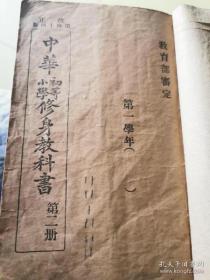 教育部審定
第一學年（　）
中華初等小學修身教科書
第二册